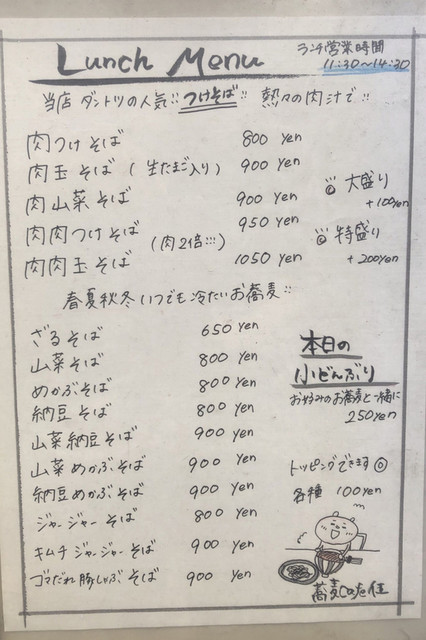 Lunch Menu
ランチ営業時間
11:30～14:30
当店ダントツの人気!! つけそば 熱々の肉汁で!!
肉つけそば 800 yen
肉玉そば (生たまご入り) 900 yen
肉山菜そば 900 yen
肉肉つけそば 950 yen
(肉2倍!!!)
肉肉玉そば 1050 yen
◎ 大盛り
+100yen
◎ 特盛り
+200yen
春夏秋冬いつでも冷たいお蕎麦!!
ざるそば 650 yen
山菜そば 800 yen
めかぶそば 800 yen
納豆そば 800 yen
山菜納豆そば 900 yen
山菜めかぶそば 900 yen
納豆めかぶそば 900 yen
ジャージャーそば 800 yen
キムチジャージャーそば 900 yen
ゴマだれ豚しゃぶそば 900 yen
本日の
小どんぶり
お好みのお蕎麦と一緒に
250yen
トッピングできます◎
各種 100yen
蕎麦